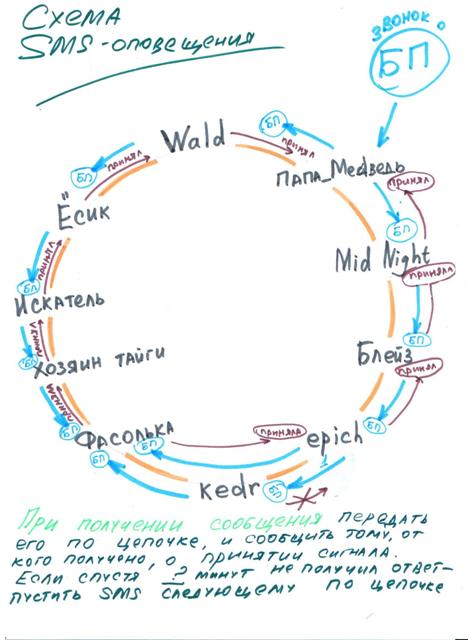 Схема
SMS-оповещения
звонок о
БП
Wald
БП
принял
Папа_Медведь
принял
БП
Mid Night
приняла
БП
Блейз
принял
БП
epich
1
БП
kedr
приняла
БП
БП
Фасолька
принял
БП
Хозяин тайги
принял
БП
Искатель
принял
БП
Ёсик
принял
БП
При получении сообщения передать
его по цепочке, и сообщить тому, от
кого получено, о принятии сигнала.
Если спустя ? минут не получил ответ-
пустить SMS следующему по цепочке